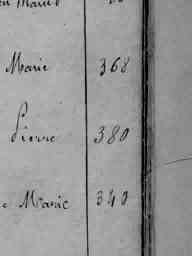 Marie 368
Pierre 380
Marie 340